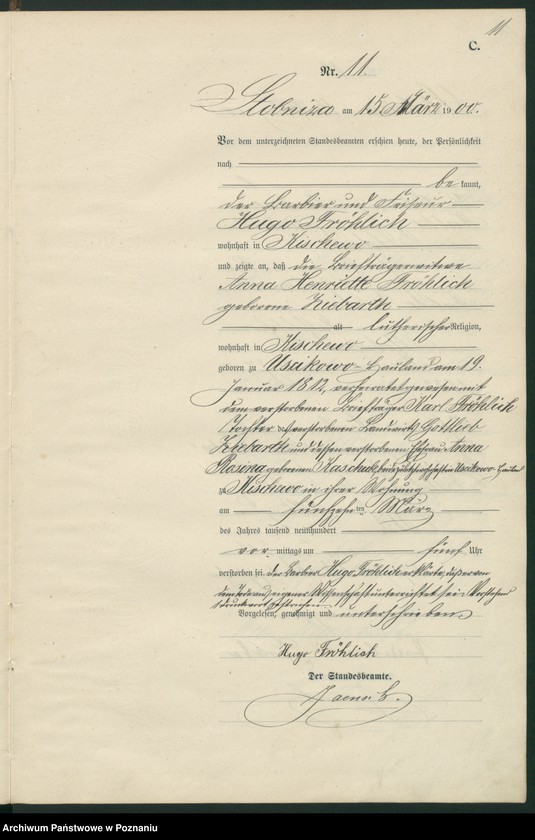 11
C.
Nr. 11.
am 15 März 1900.
Vor dem unterzeichneten Standesbeamten erschien heute, der Persönlichkeit
nach
be kannt,
der Barbier und Friseur
Hugo Fröhlich
wohnhaft in Kischewo
und zeigte an, daß die Briefträgerwitwe
Anna Henriette Fröhlich
geborene Ziebarth
alt lutherischer Religion,
wohnhaft in Kischewo
geboren zu Uscikowo-Hauland am 19.
Januar 1812, verheiratet gewesen mit
dem verstorbenen Briefträger Karl Fröhlich
Tochter des verstorbenen Landwirts Gottlieb
Ziebarth und dessen verstorbenen Ehefrau Anna
Rosina geborenen beide zuletzt wohnhaft in Uscikowo-Hauland
zu Kischewo in ihrer Wohnung
am fünfzehn ten März
des Jahres tausend neunhundert
vor mittags um fünf Uhr
verstorben sei. Der Barbier Hugo Fröhlich erklärte, daß er von
dem Tode aus eigener Wissenschaft unterrichtet sei. Vorstehend
Druckwort gestrichen.
Vorgelesen, genehmigt und unterschrieben.
Hugo Fröhlich
Der Standesbeamte.
Archiwum Państwowe w Poznaniu